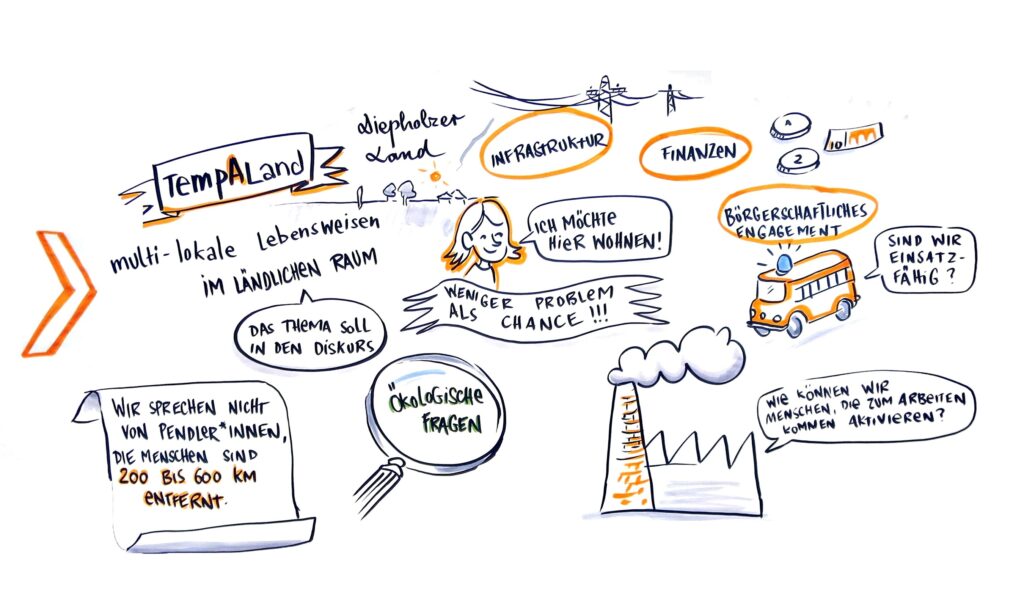 TempALand
Diepholzer
Land
INFRASTRUKTUR
FINANZEN
A
2
10
multi-lokale Lebensweisen
IM LÄNDLICHEN RAUM
ICH MÖCHTE
HIER WOHNEN!
BÖRGERSCHAFTLICHES
ENGAGEMENT
SIND WIR
EINSATZ-
FÄHIG?
WENIGER PROBLEM
ALS CHANCE!!!
DAS THEMA SOLL
IN DEN DISKURS
WIR SPRECHEN NICHT
VON PENDLER*INNEN,
DIE MENSCHEN SIND
200 BIS 600 KM
ENTFERNT.
ÖKOLOGISCHE
FRAGEN
WIE KÖNNEN WIR
MENSCHEN, DIE ZUM ARBEITEN
KOMMEN AKTIVIEREN?